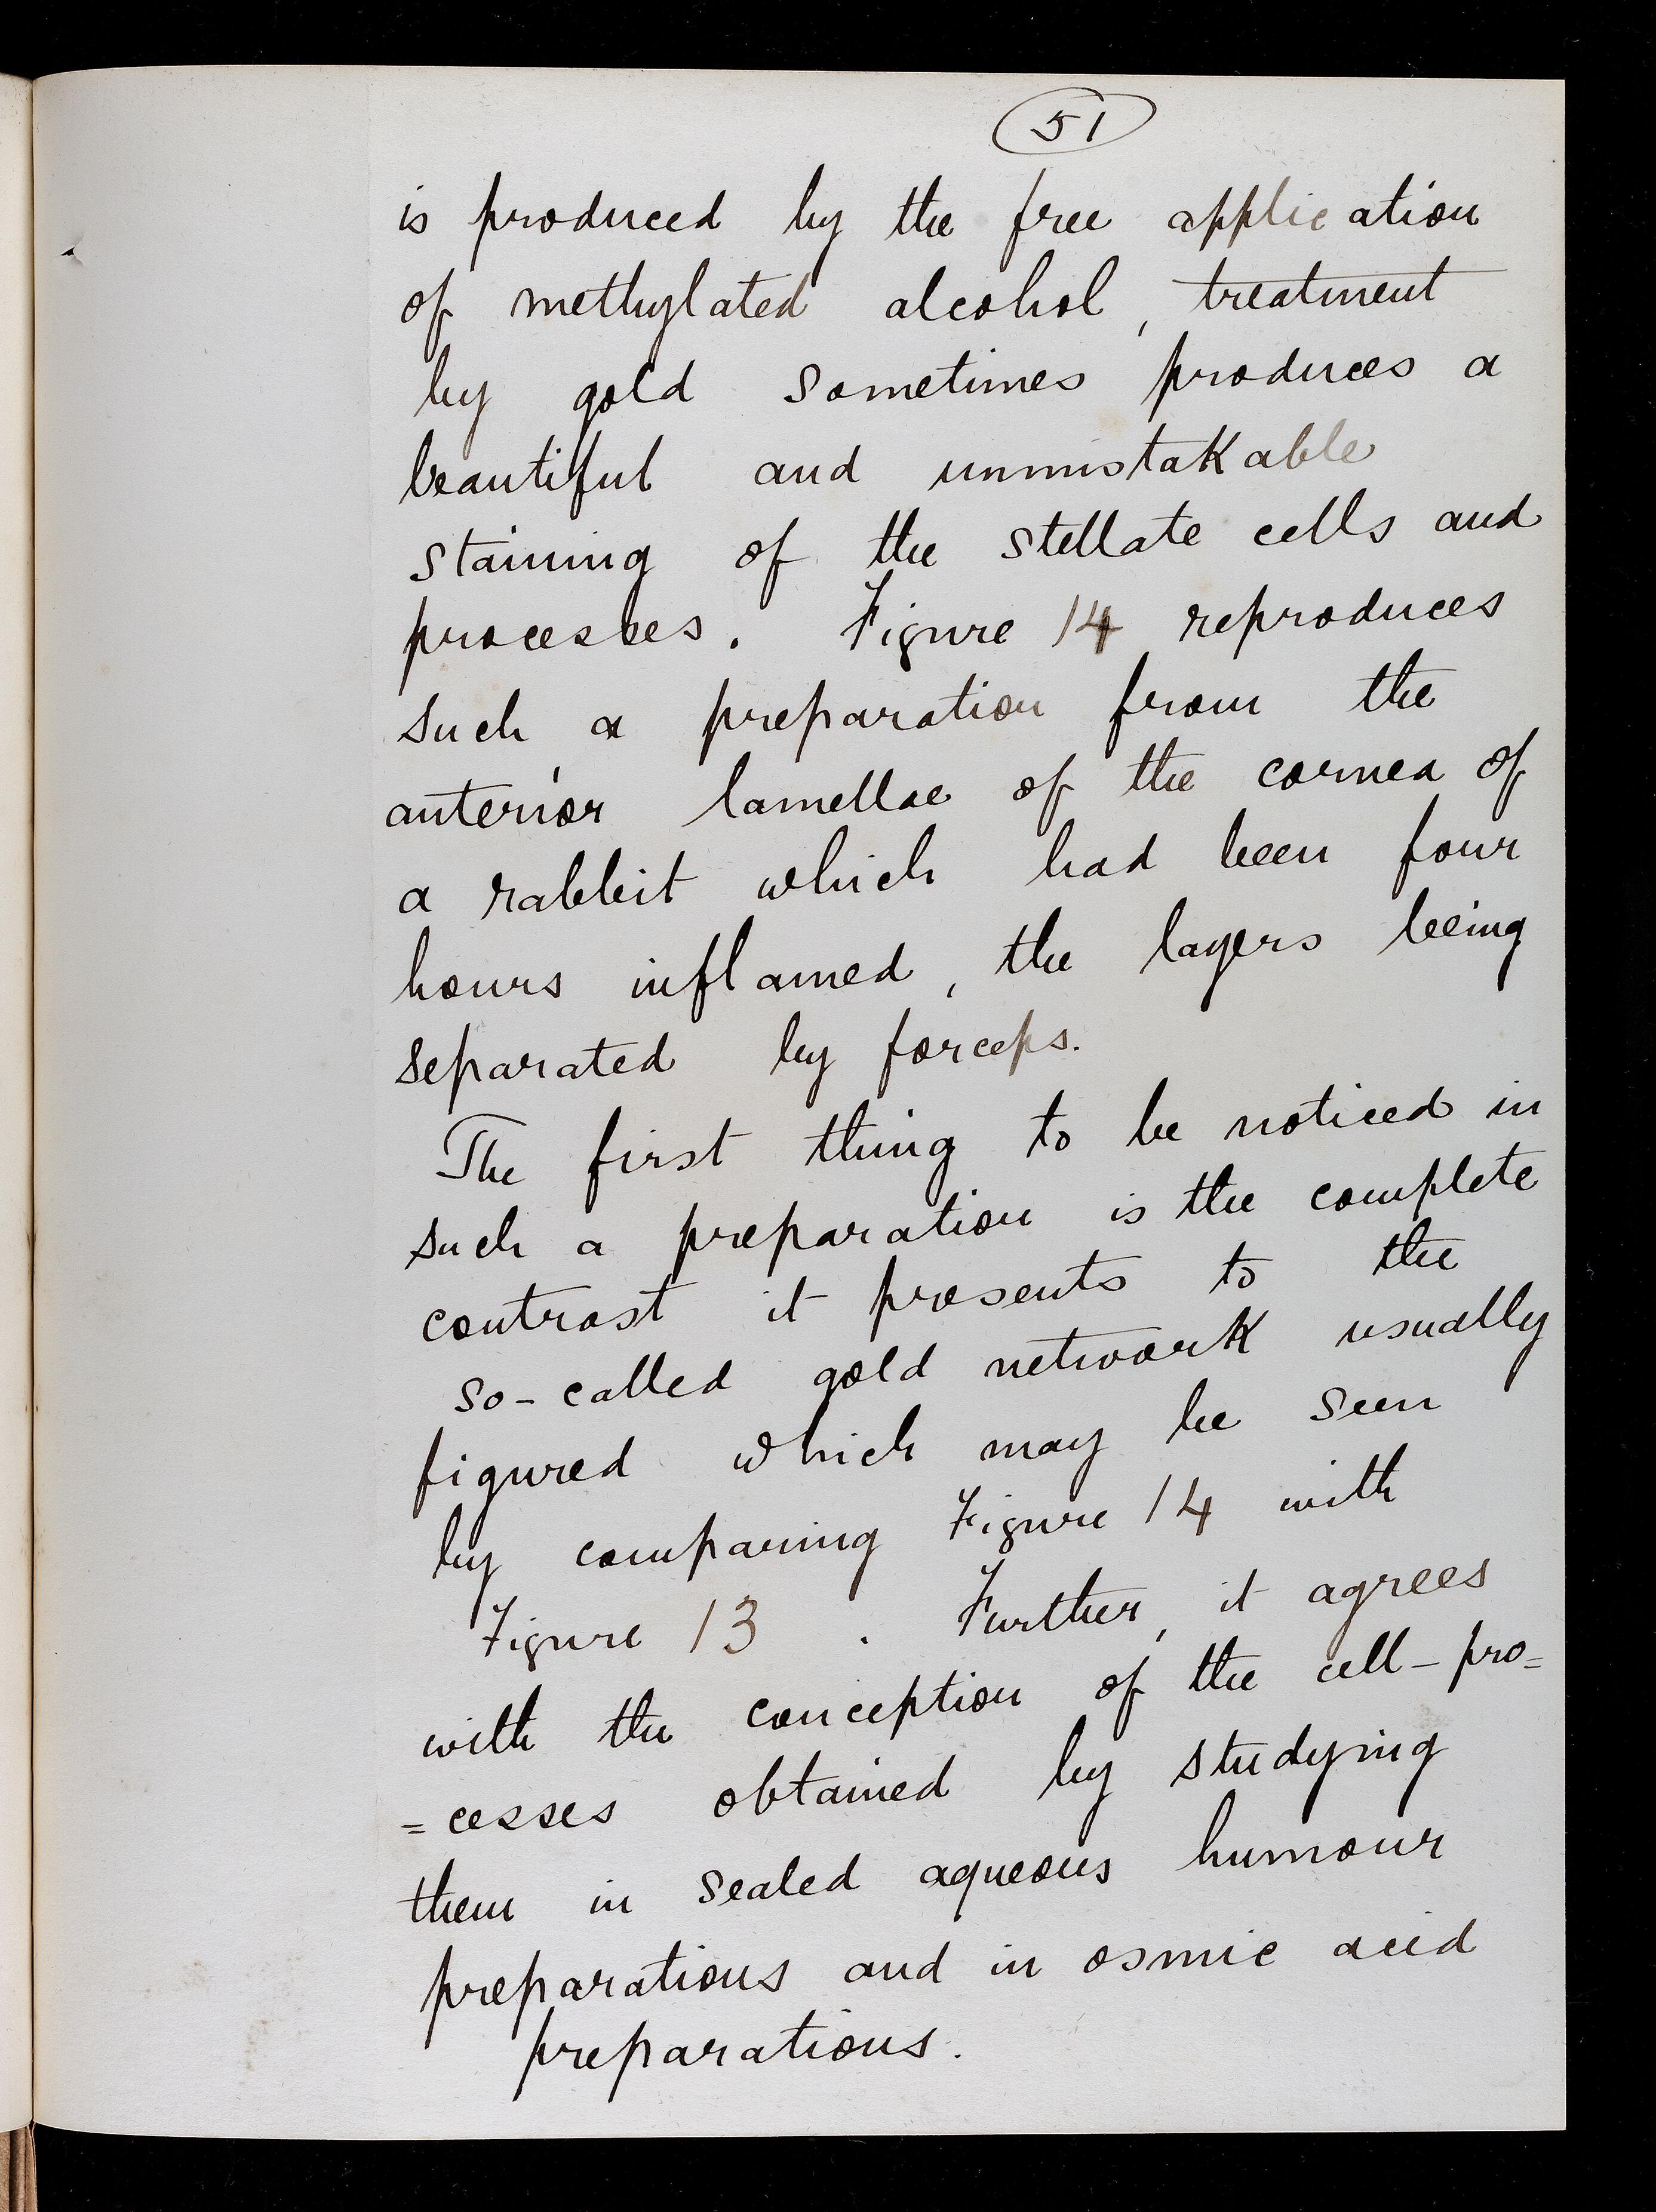 51
is produced by the free application
of methylated alcohol, treatment
by gold sometimes produces a
beautiful and unmistakable
staining of the stellate cells and
processes. Figure 14 reproduces
such a preparation from the
anterior lamellae of the cornea of
a rabbit which had been four
hours inflamed, the layers being
separated by forceps.
The first thing to be noticed in
such a preparation is the complete
contrast it presents to the
so-called gold network usually
figured which may be seen
by comparing Figure 14 with
Figure 13. Further, it agrees
with the conception of the cell-pro=
=cesses obtained by studying
them in sealed aqueous humour
preparations and in osmic acid
preparations.